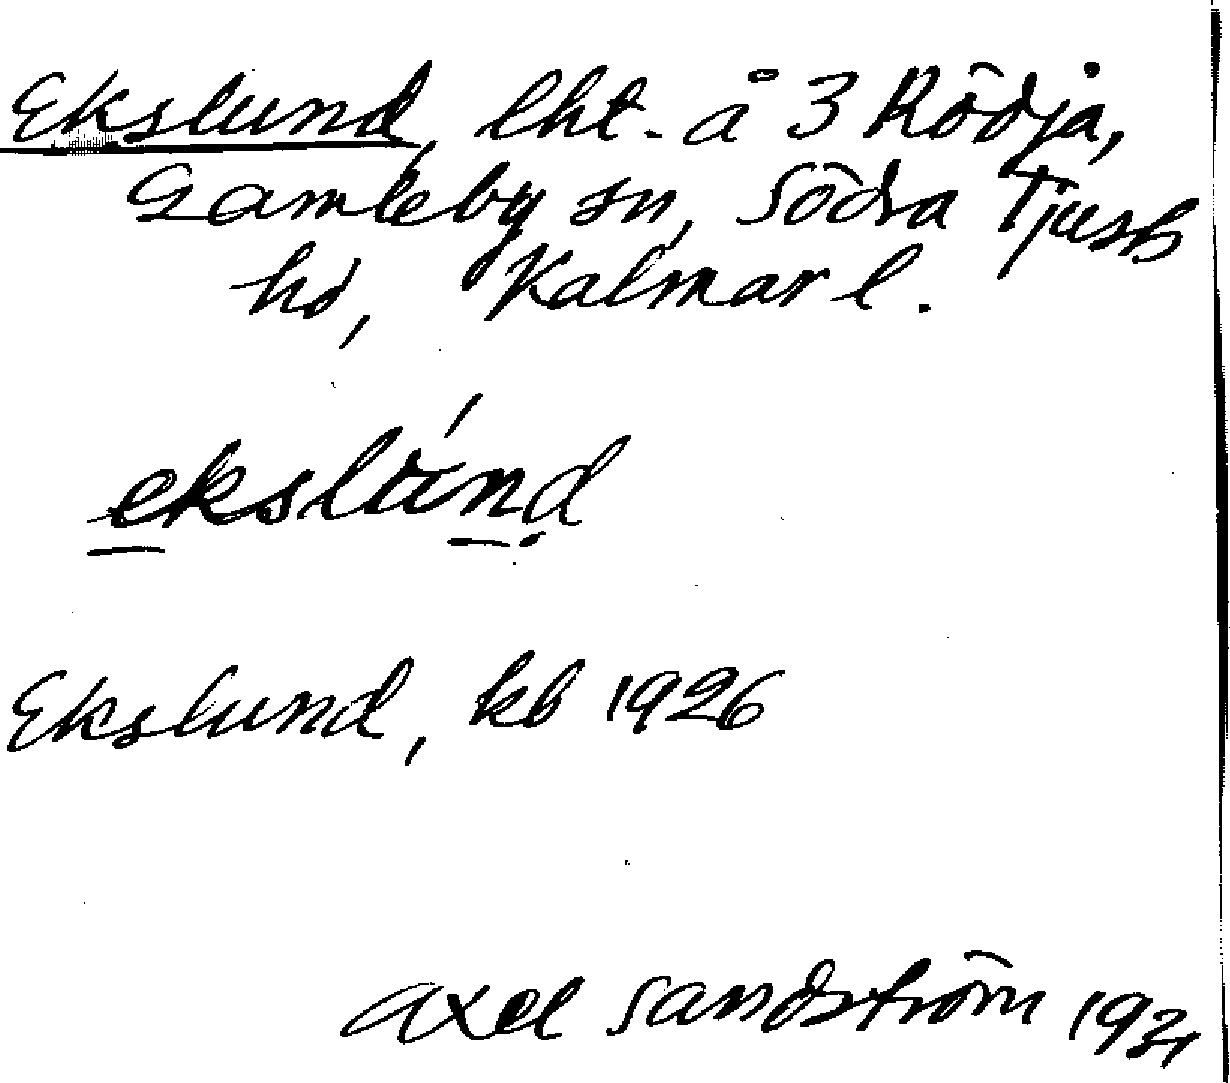 Ekslund, lht. å 3 Rödja,
Gamleby sn, Södra Tjusts
hd, Kalmar l.
ekslúnd
Ekslund, kb 1926
Axel Sandström 1931